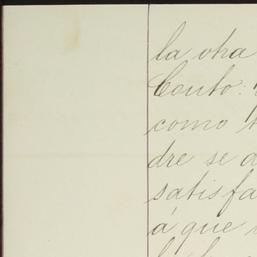 la otra
Couto:
como t
dre se a
satisfa
á que